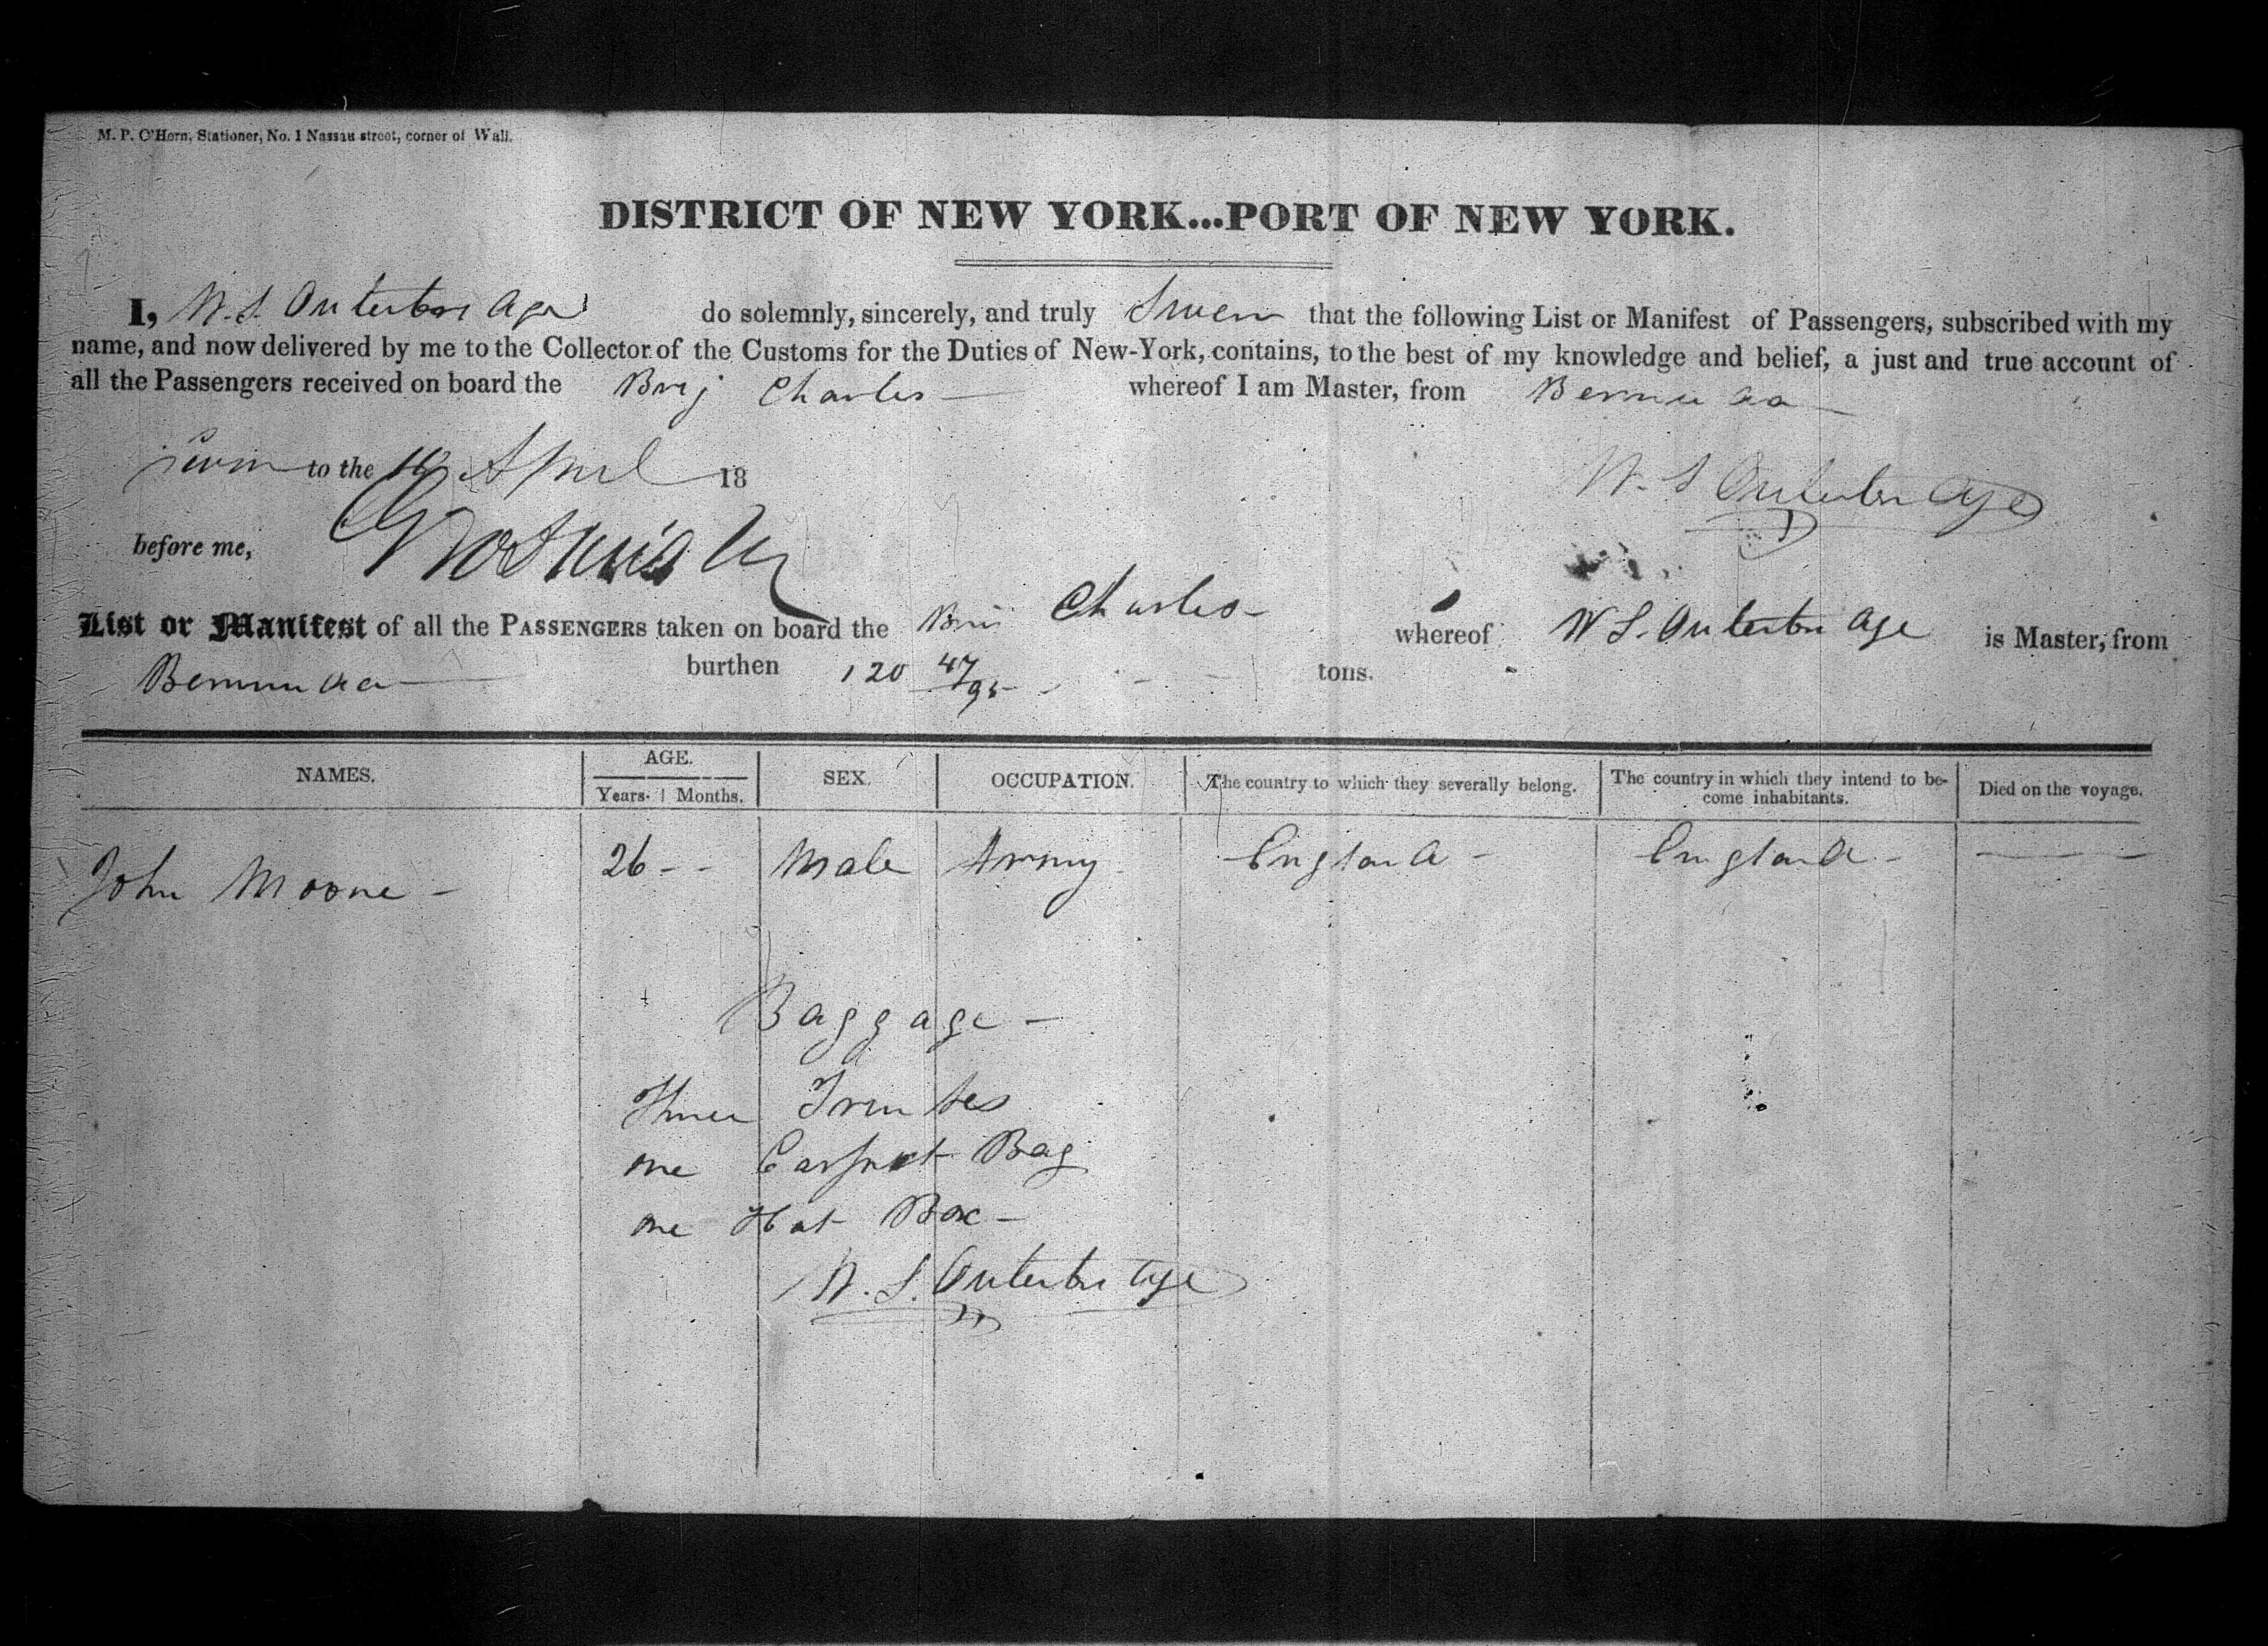 M. P. O'Hern, Stationer, No. 1 Nassau street, corner of Wall.
DISTRICT OF NEW YORK...PORT OF NEW YORK.
I, W. S. Outerbridge do solemnly, sincerely, and truly Swear that the following List or Manifest of Passengers, subscribed with my
name, and now delivered by me to the Collector of the Customs for the Duties of New-York, contains, to the best of my knowledge and belief, a just and true account of
all the Passengers received on board the Brig Charles whereof I am Master, from Bermuda
Sworn to the April 18
W. S Outerbridge
before me,
List or Manifest of all the PASSENGERS taken on board the Brig Charles whereof W S. Outerbridge is Master, from
Bermuda burthen 120 47/95 tons.
NAMES. AGE. SEX. OCCUPATION. The country to which they severally belong. The country in which they intend to be-
come inhabitants. Died on the voyage.
Years. Months.
John Moore - 26 - - Male Army England - England - - - -
Baggage -
Three Trunks
one Carpet Bag
one Hat Box -
W. S. Outerbridge